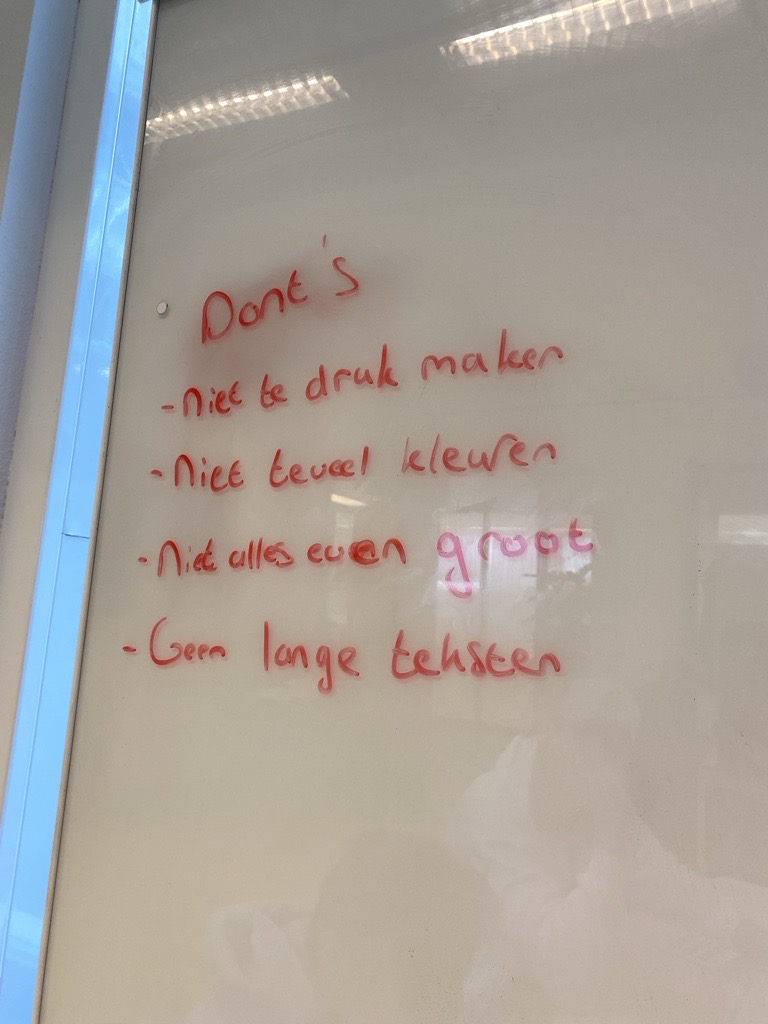 Dont's
- niet te druk maken
- Niet teveel kleuren
- Niet alles even groot
- Geen lange teksten